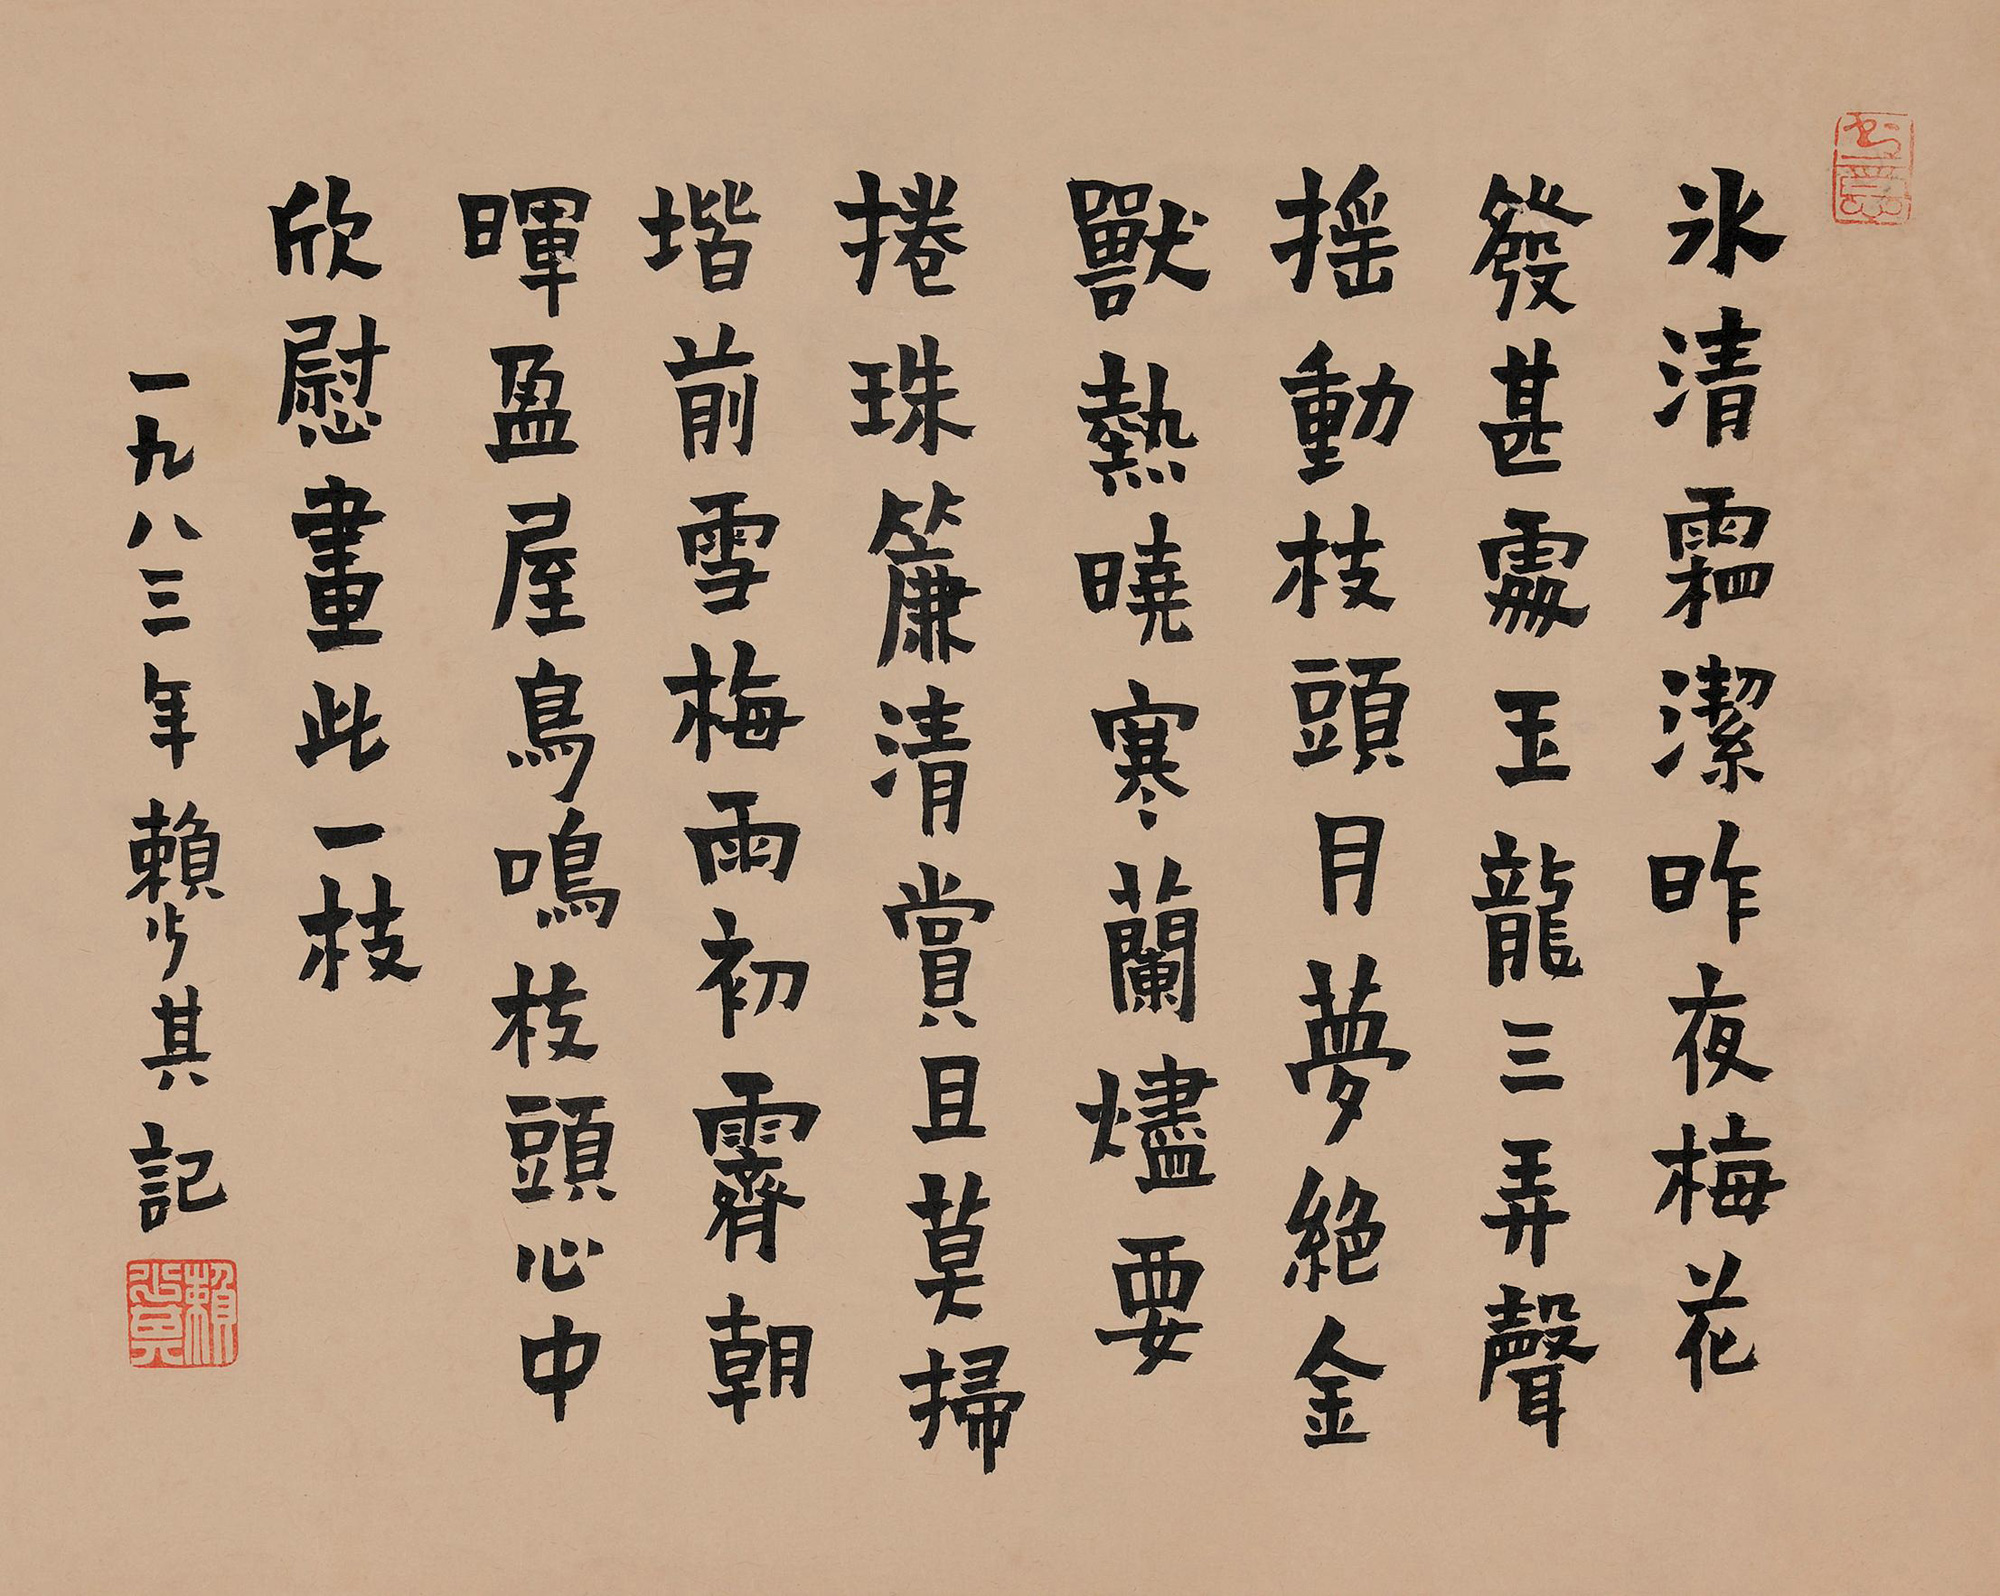 氷清霜潔昨夜梅花
發甚處玉龍三弄聲
摇動枝頭月夢絶金
獸熱曉寒蘭燼要
捲珠簾清賞且莫掃
堦前雪梅雨初霽朝
暉盈屋鳥鳴枝頭心中
欣慰畫此一枝
一九八三年賴少其記